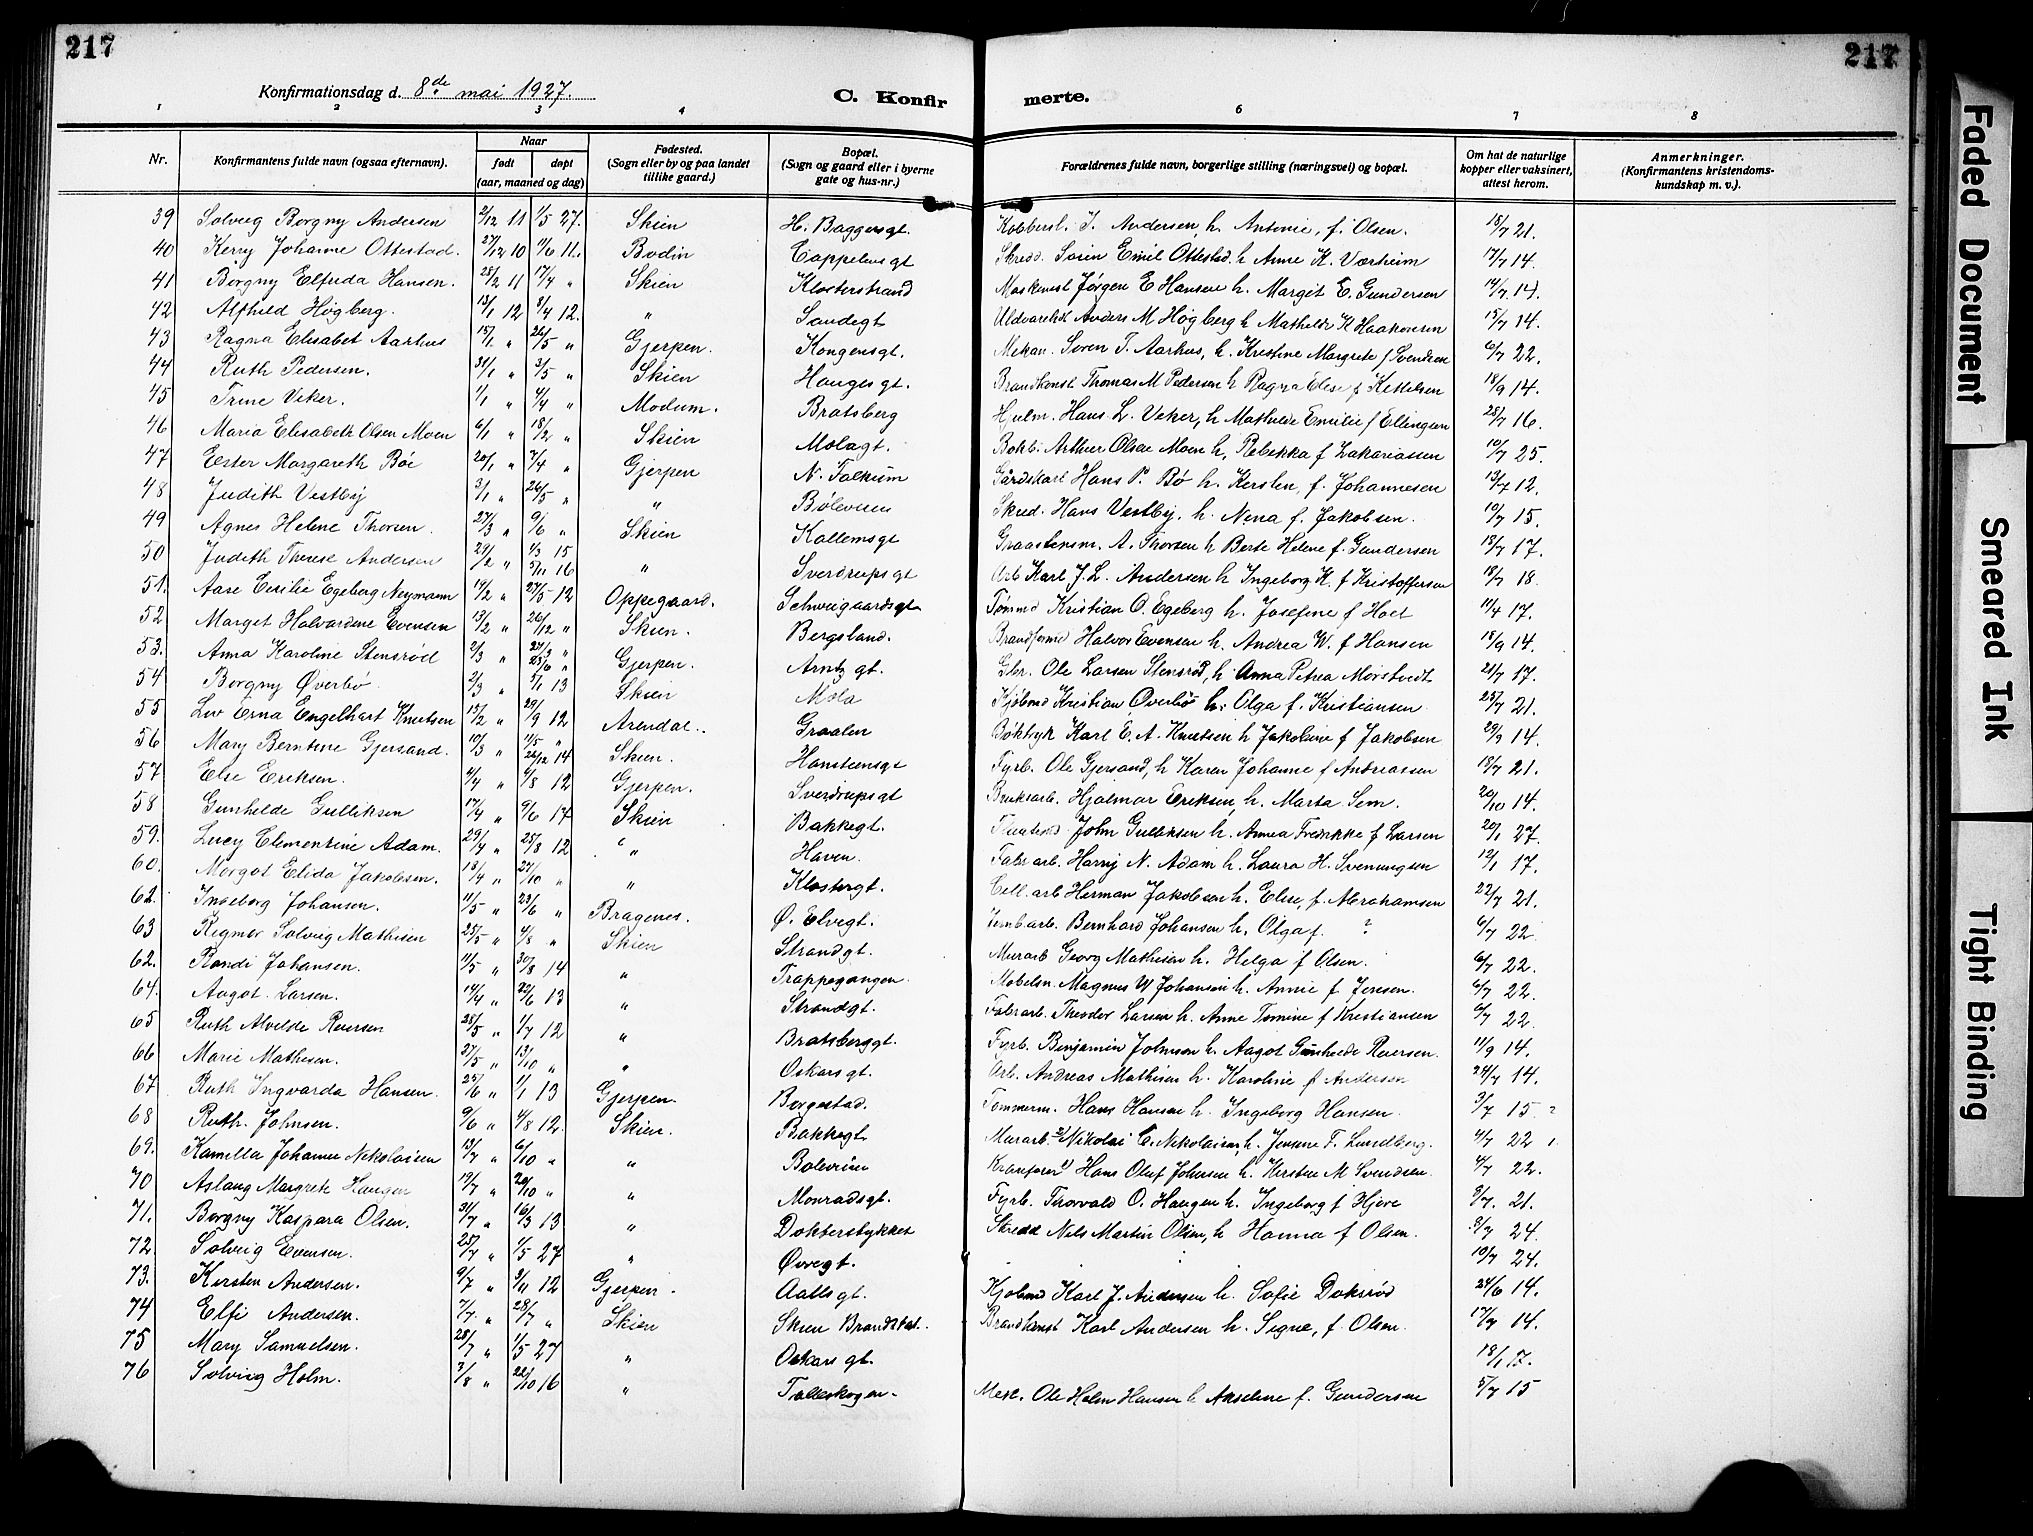 217
217
Konfirmationsdag d. 8de mai 1927.
C. Konfirmerte.
1 2 3 4 6 7 8
Nr. Konfirmantens fulde navn (ogsaa efternavn). Naar født døpt (aar, maaned og dag) Fødested. (Sogn eller by og paa landet tillike gaard.) Bopæl. (Sogn og gaard eller i byerne gate og hus-nr.) Forældrenes fulde navn, borgerlige stilling (næringsvei) og bopæl. Om hat de naturlige kopper eller vaksinert, attest herom. Anmerkninger. (Konfirmantens kristendomskundskap m. v.).
39 Solveig Borgny Andersen 2/12 11 1/5 27. Skien H. Baggersgt. Kobbersl. J. Andersen, h. Antonie, f. Olsen. 18/7 21.
40 Kerry Johanne Ottestad. 27/12 10 11. Bodin Cappelensgt Skredd. Søren Emil Ottestad. h Anne K. Værheim 17/7 14.
41 Borgny Elfrida Hansen. 25/2 11 17/4 " Skien Klosterstrand Maskinist Jørgen E Hansen h. Margit E. Gundersen 14/7 14.
42 Alfhild Høgberg. 13/1 12 8/4 12. " Sandegt Uldvarehdl Anders M Høgberg h Mathilde K Haakonsen 15/7 14.
43 Ragna Elisabet Aarhus 15/1 " 26/5 " Gjerpen. Kongensgt. Mekan. Søren T. Aarhus, h. Kristine Margrete f Svendsen 6/7 22.
44 Ruth Pedersen. 31/1 " 3/5 " Skien Haugesgt. Brandkonst Thomas M Pedersen h Ragna Elise f Kittelsen 18/9 14.
45 Trine Veker. 1/1 " 4/4 " Modum. Bratsberg Hjulm. Hans L. Veker, h Mathilde Emilie f Ellingsen 28/7 16.
46 Maria Elisabeth Olsen Moen 6/1 " 18/2 " Skien Molagt. Bokb. Arthur Olsen Moen h, Rebekka f Zakariassen 10/7 25.
47 Ester Margareth Bøe 20/1 " 7/4 " Gjerpen N. Falkum Gårdskarl Hans P. Bø h. Kersten, f. Johannesen 13/7 12.
48 Judith Vestby 3/1 " 26/5 " " Bøleveien Skred. Hans Vestby. h. Nena f. Jakobsen. 10/7 15.
49 Agnes Helene Thorsen. 27/3 " 9/6 " Skien Kallemsgt Graastensm. A. Thorsen h Berte Helene f. Gundersen 18/7 17.
50 Judith Therese Andersen 29/2 " 1/3 15 5/11 16 " Sverdrupsgt Arb Karl J. L. Andersen h Ingeborg K. f Kristoffersen 18/7 18.
51. Aase Cecilie Egeberg Neymann 14/2 " 27/5 12 Oppegaard. Schweigaardsgt Tømmd Kristian O. Egeberg h. Josefine f Hoel 11/4 17.
52 Marget Halvardine Evensen 13/2 " 26/12 " Skien. Bergsland. Brandformd Halvor Evensen h. Andrea W. f Hansen 18/9 14.
53. Anna Karoline Stensrød 2/3 " Gjerpen. Arntzgt. Gbr. Ole Larsen Stensrød, h. Anna Petrea Mørstvedt 21/7 17.
54 Borgny Øverbø 2/3 " 5/1 13 Skien Mola Kjøbmd Kristian Øverbø h: Olga f. Kristiansen. 25/7 21.
55 Liv Erna Engelhart Knutsen 13/2 " 29/9 12 Arendal.. Graalen Boktryk Karl E. A. Knutsen h Jakobine f Jakobsen 29/9 14.
56 Mary Berntine Gjersand. 10/3 " 11/5 " 26/12 14 Skien. Hansteensgt Fyrb. Ole Gjersand, h Karen Johanne f Andreassen 18/7 21.
57 Else Eriksen. 4/4 " 4/8 12 Gjerpen. Sverdrupsgt Bruksarb. Hjalmar Eriksen, h. Marta Sem. 20/10 14.
58 Gunhilde Gulliksen 17/4 " 9/6 17 Skien Bakkegt. John Gulliksen h. Annea Fredrikke f Larsen 20/1 27.
59. Lucy Clementine Adam. 29/4 " 25/8 12 " Haven. Fabr arb. Harry N. Adam h. Laura H. Svenungsen 12/1 17.
60. Morgot Elida Jakobsen. 18/4 " 27/10 " " Klostergt. Cell. arb Herman Jakobsen h. Elise, f. Abrahamsen 22/7 21.
62. Ingeborg Johansen. 11/5 " 23/6 " Bragenes. Ø. Elvegt. Jernb arb. Bernhard Johansen h. Olga f. ? 6/7 22
63 Rigmor Solveig Mathisen 25/5 " 4/8 " Skien Strandgt. Murarb Georg Mathisen h. Helga f Olsen. 6/7 22.
62. Randi Johansen. 11/5 " 30/8 14 " Trappegangen. Møbelsn. Magnus W Johansen h. Annie f Jensen. 6/7 22.
64. Aagot Larsen. 14/4 " 22/6 13 " Strandgt. Fabr arb. Theodor Larsen h. Anne Tomine f Kristiansen 6/7 22.
65 Ruth Alvilde Reiersen 28/5 " 1/7 12 " Bratsberggt. Fyrb. Benjamin Johnsen h. Aagot Gunhilde Reiersen. 11/9 14.
66 Marie Mathisen. 27/5 " 13/10 " " Oskarsgt. Arb. Andreas Mathisen h. Karoline f Andersen 24/7 14.
67 Ruth Ingvarda Hansen. 25/6 " 1/1 13 Gjerpen. Borgestad. Tømmerm. Hans Hansen h. Ingeborg Hansen. 3/7 15. ?
68 Ruth. Johnsen. 9/6 " 4/8 12. Skien. Bakkegt Murarb. 2) Nikolai C. Nikolaisen, h. Jensine F. Lundberg. 4/7 22
69. Kamilla Johanne Nikolaisen 13/7 " 6/10 " " Boleveien Kranfører 1) Hans Oluf Johnsen h. Kirsten M Svendsen. 4/7 22.
70 Aslaug Margrete Haugen 19/7 " 20/10 " " Monradsgt. Fyrb. Thorvald O. Haugen h. Ingeborg f Hjeve 9/7. 21.
71. Borgny Kaspara Olsen. 31/7 " 16/3 13 " Dokterstykket Skredd Nils Martin Olsen, h Hanna f Olsen. 3/7 24.
72. Solveig Evensen. 25/7 " 1/5 27 " Øvregt. 19/7 24.
73. Kirsten Andersen. 9/7 " 3/11 12 Gjerpen. Aallsgt. Kjøbmd Karl J. Andersen h. Sofie Doksrød 24/6 14.
74 Elfi Andersen. 7/7 " 28/7 " Skien Skien Brandstat. Brandkonst Karl Andersen h. Signe, f. Olsen. 17/7 14.
75 Mary Samuelsen. 28/7 " 1/5 27 " Oskarsgt. 18/1 17.
76 Solveig Holm. 3/8 " 22/10 16 " Follaskogen. Mest. Ole Holm Hansen h Akseline f. Gundersen 5/7 15
Faded Document
Smeared Ink
Tight Binding